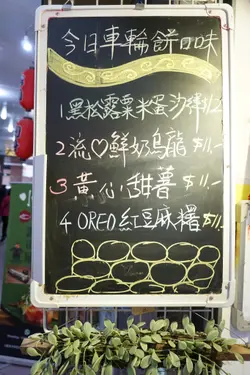 今日車輪餅口味
1 黑松露粟米蛋沙律 $12
2 流♡鮮奶烏龍 $11.-
3 黃心甜薯 $11.-
4 OREO 紅豆麻糬 $11.-